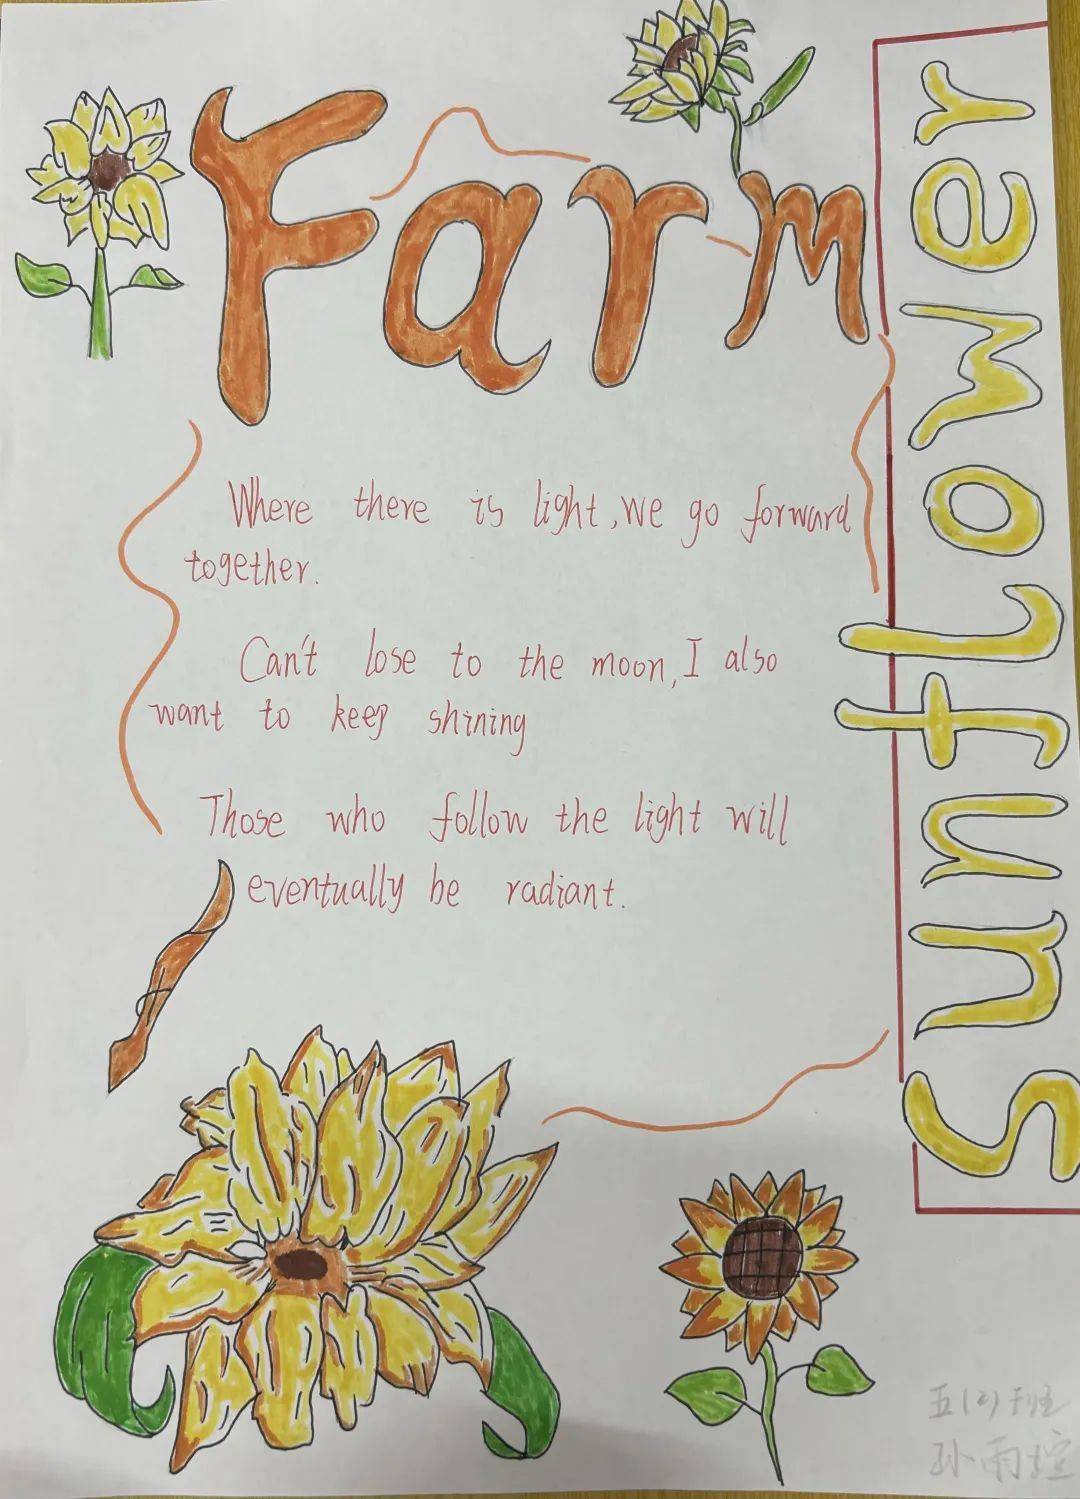 Farm
sunflower
Where there is light,we go forward
together.
Can't lose to the moon,I also
want to keep shining
Those who follow the light will
eventually be radiant.
五(2)班
孙雨萱